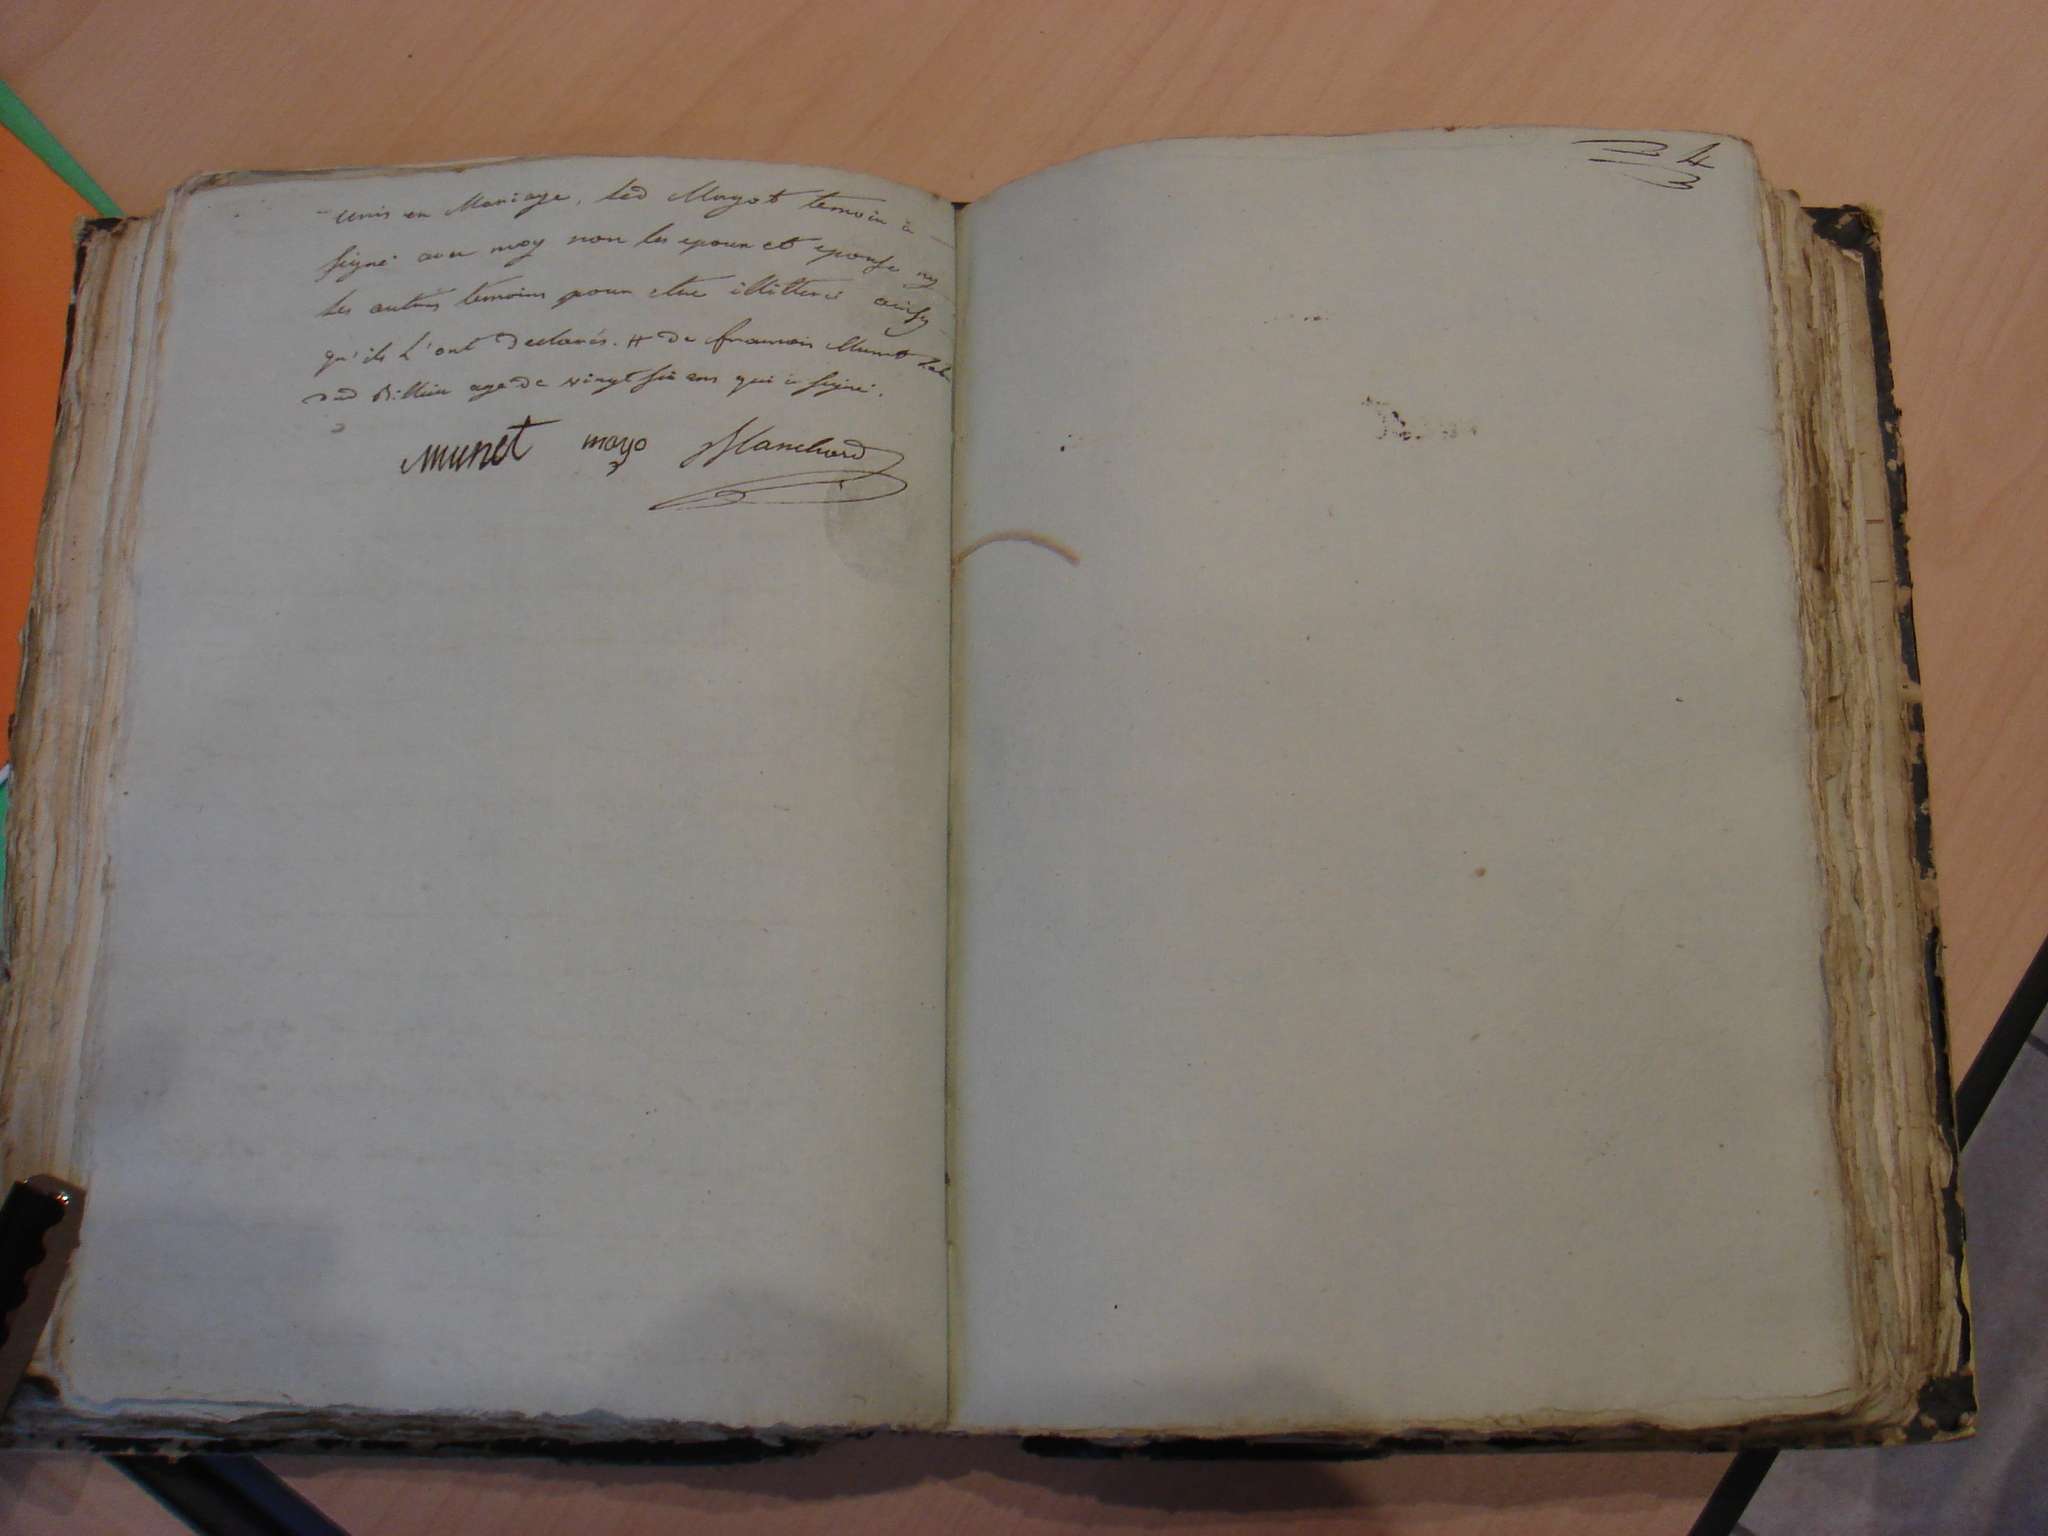 unis en Mariage, led Mayot temoin à
signé avec moy non les epoux et epouse ny
les autres temoins pour etre illitteré ainsy
qu'ils l'ont declarés. # de francois Munet hab
dud Billieu age de vingt six ans qui à signé.
munet mayo Blanchard
4